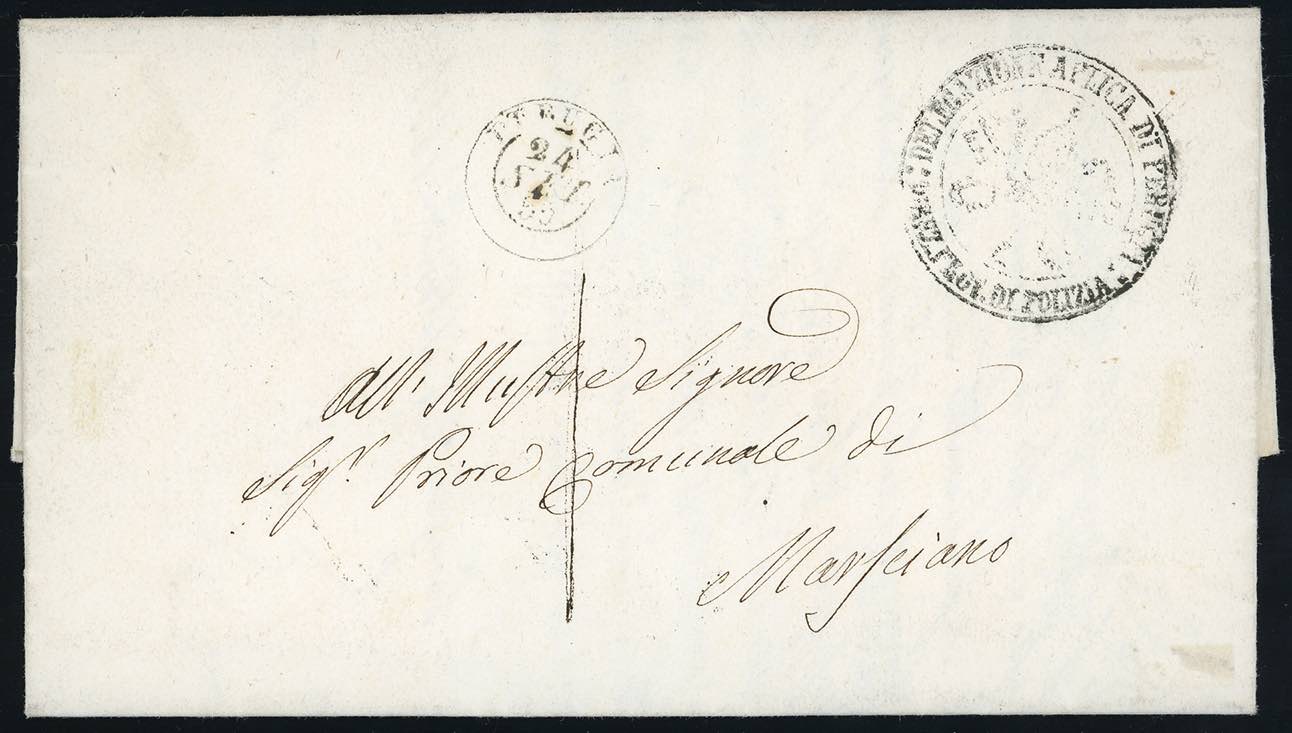 PERUGIA
24
DELEGAZIONE APLICA DI PERUGIA
DI POLIZIA
All' Illustre Signore
Sigr. Priore Comunale di
Marsciano